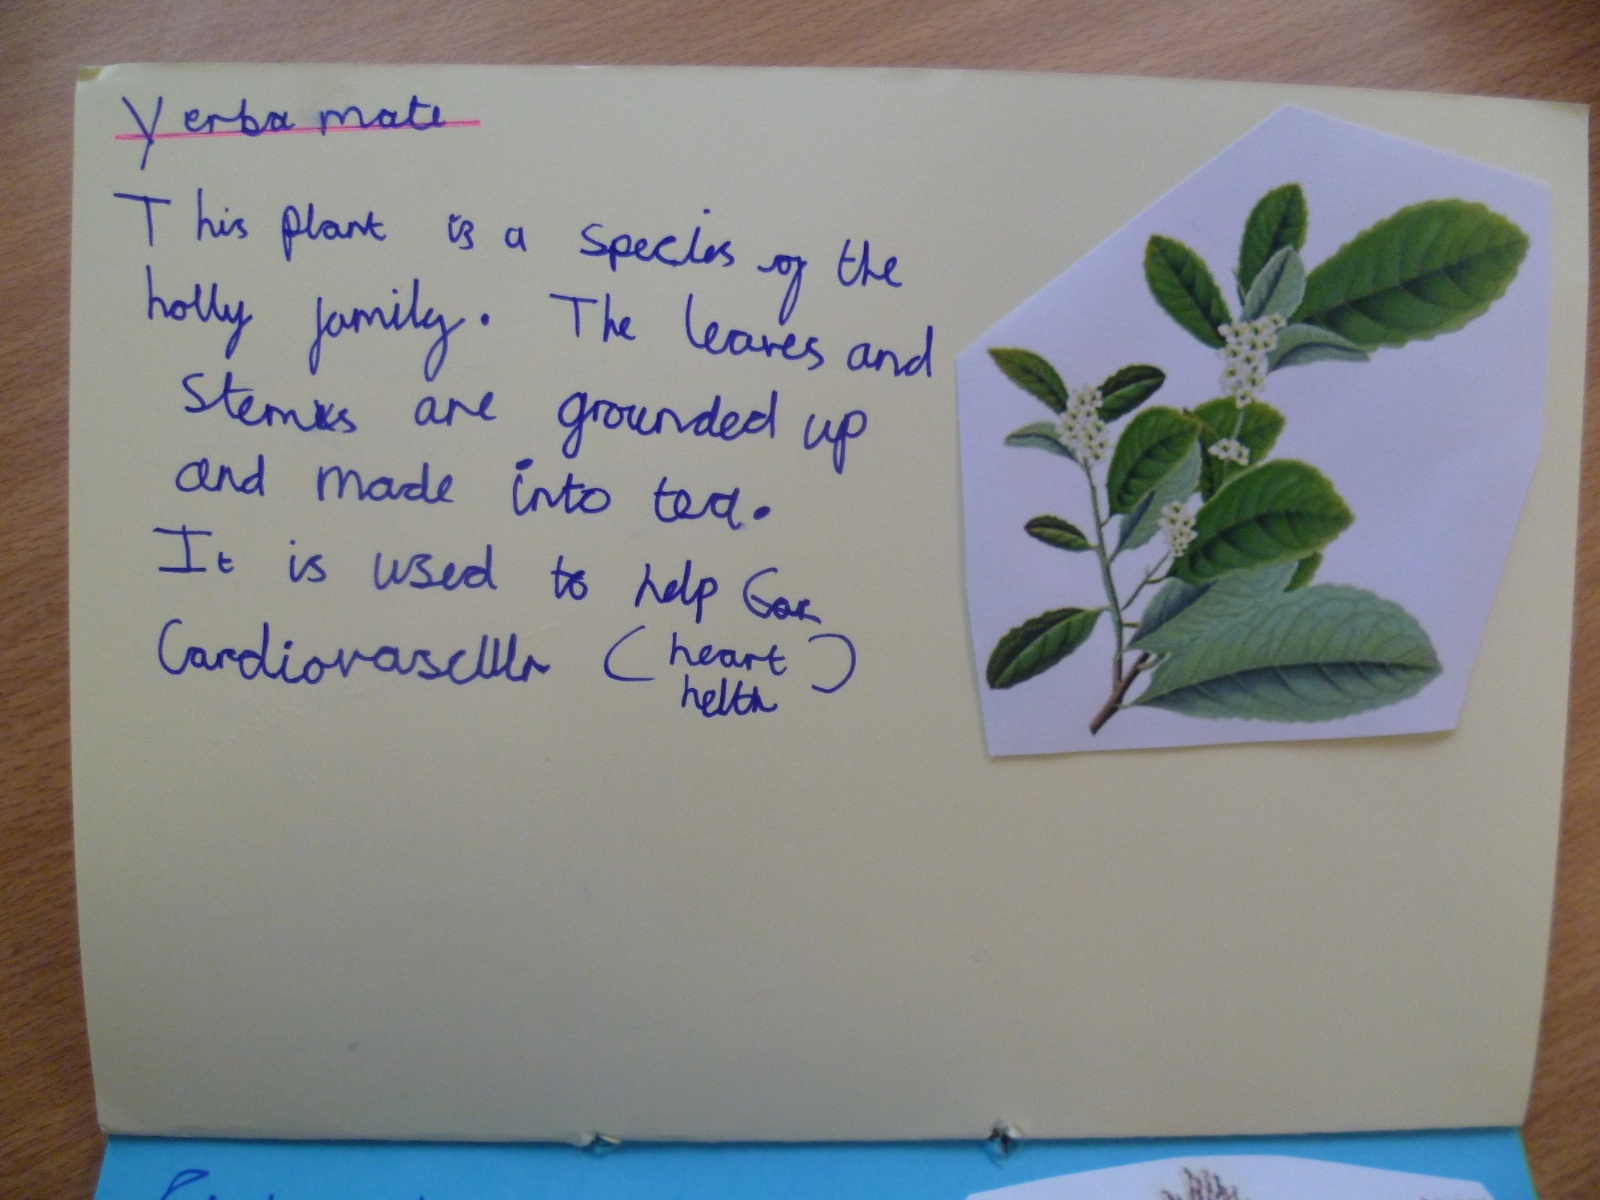 Yerba mate
This plant is a species of the
holly family. The leaves and
stems are grounded up
and made into tea.
It is used to help Car
Cardiovasculr (heart
helth)